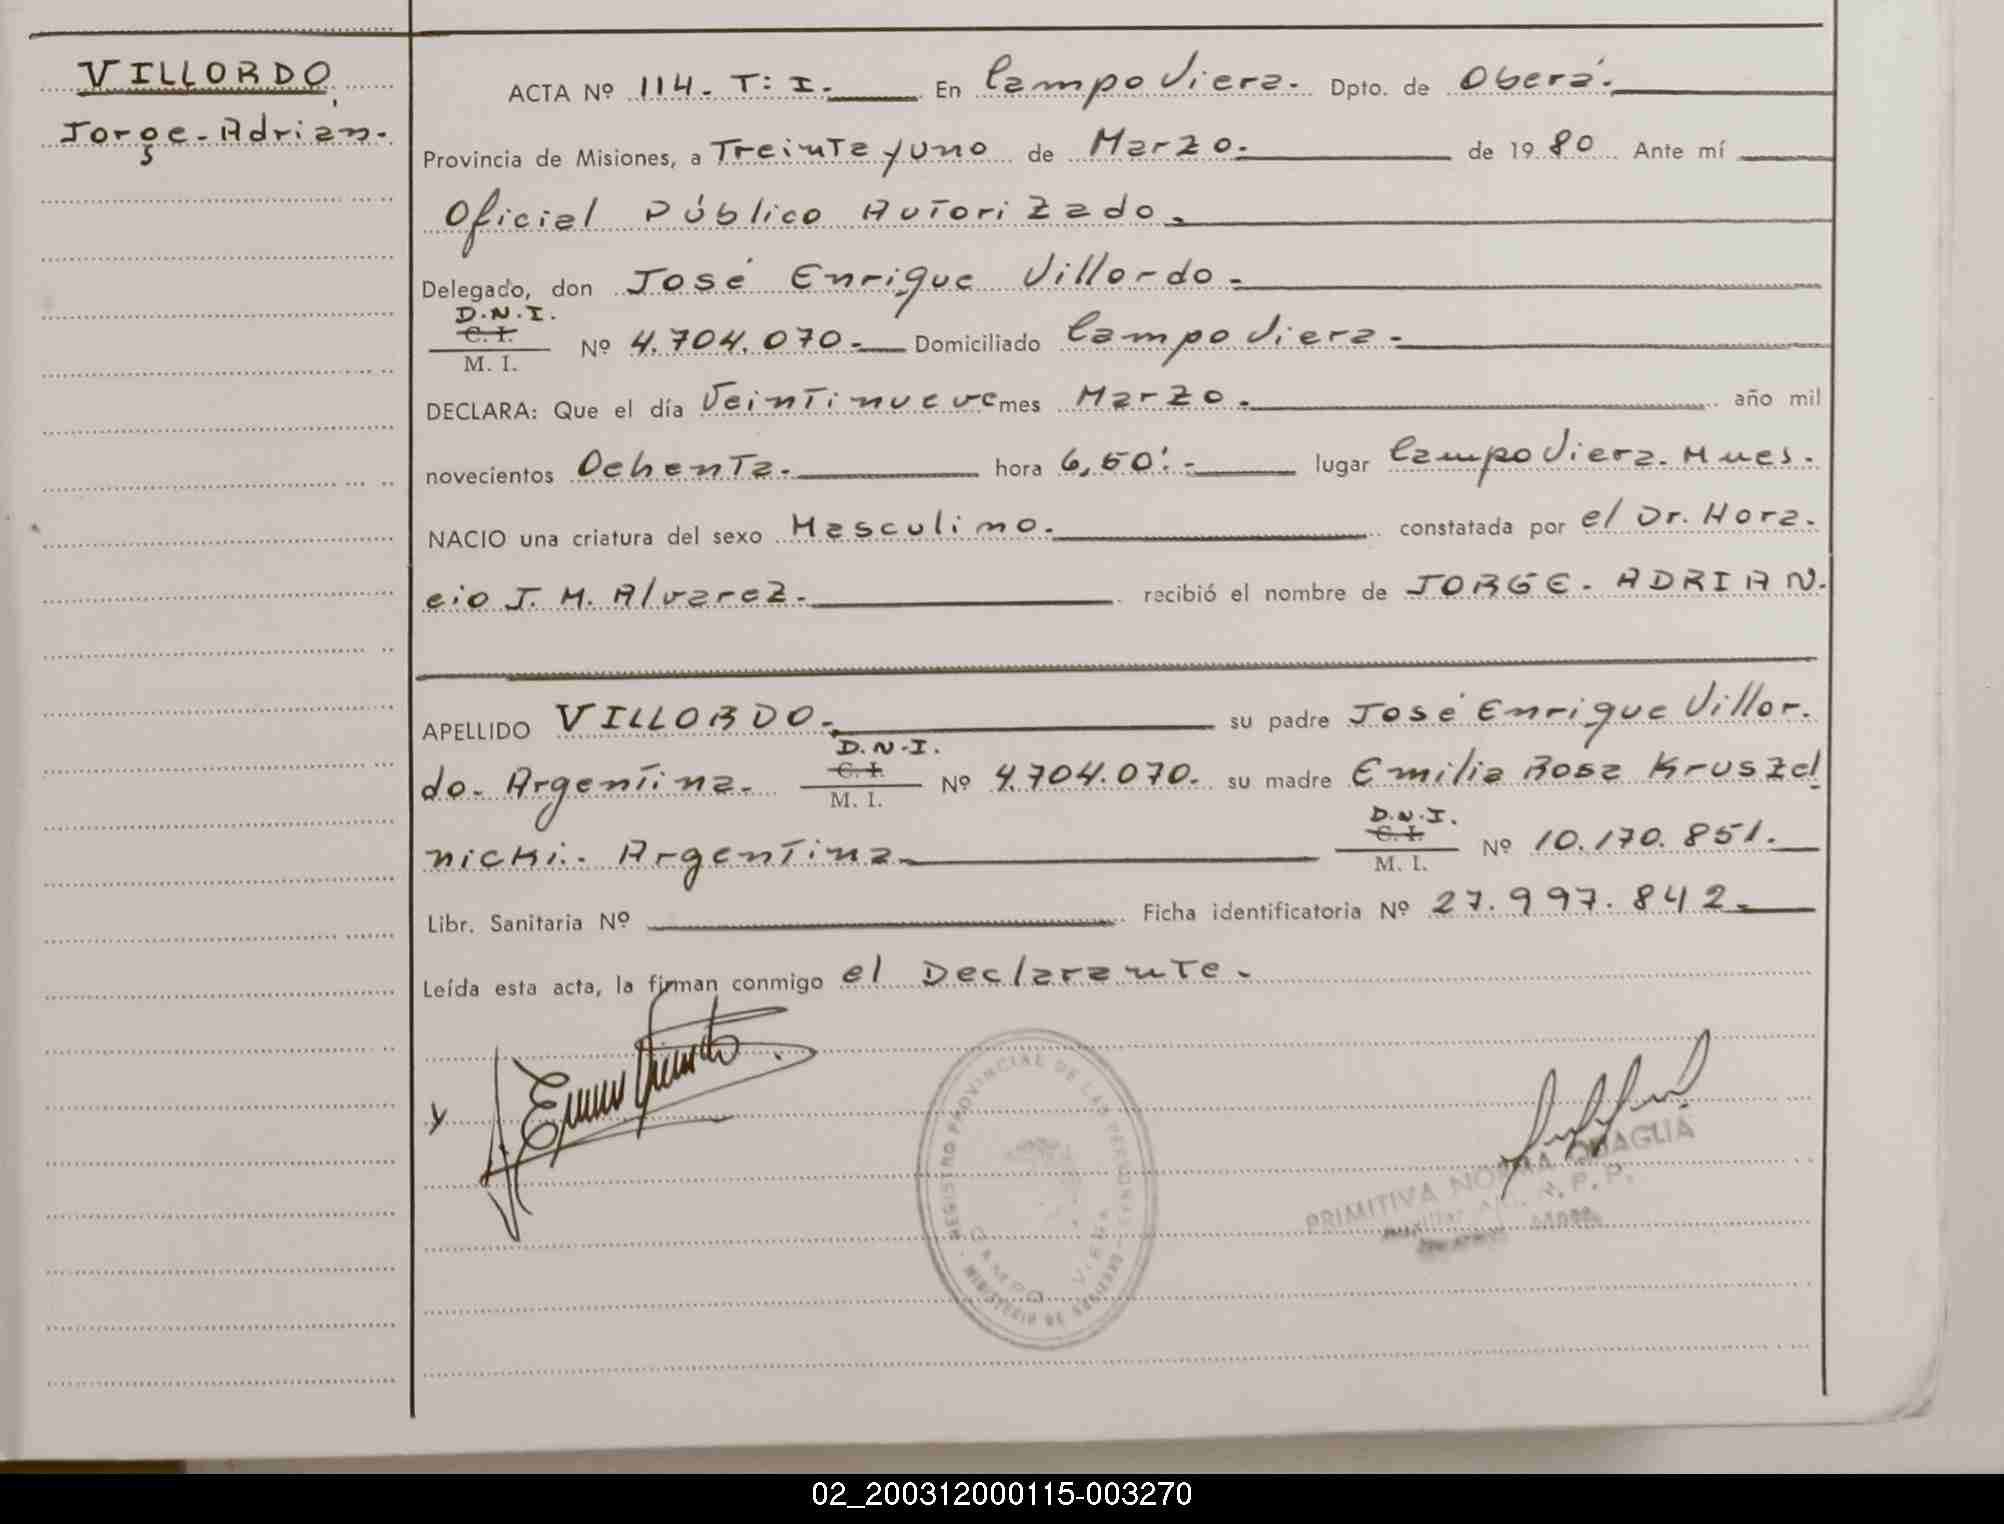 VILLORDO,
Jorge-Adrian.
ACTA Nº 114. T: I. En Campo Viera. Dpto. de Oberá.
Provincia de Misiones, a Treinta y uno de Marzo. de 1980 Ante mí
Oficial Público Autorizado.
Delegado, don José Enrique Villordo.
D.N.I.
C. I.
M. I.
Nº 4.704.070. Domiciliado Campo Viera.
DECLARA: Que el día Veintinueve mes Marzo. año mil
novecientos Ochenta. hora 6,50'. lugar Campo Viera. Mnes.
NACIO una criatura del sexo Masculino. constatada por el Dr. Hora.
cio J. M. Alvarez. recibió el nombre de JORGE. ADRIAN.
APELLIDO VILLORDO. su padre José Enrique Villor.
D.N.I.
C. I.
M. I.
do. Argentina. Nº 4.704.070. su madre Emilia Rosa Kruszel
D.N.I.
C. I.
M. I.
nicki. Argentina Nº 10.170.851.
Libr. Sanitaria Nº Ficha identificatoria Nº 27.997.842.
Leída esta acta, la firman conmigo el Declarante.
REGISTRO PROVINCIAL DE LAS PERSONAS
CAMPO VIERA
MINISTERIO DE GOBIERNO
PRIMITIVA NORMA QUAGLIA
02_200312000115-003270